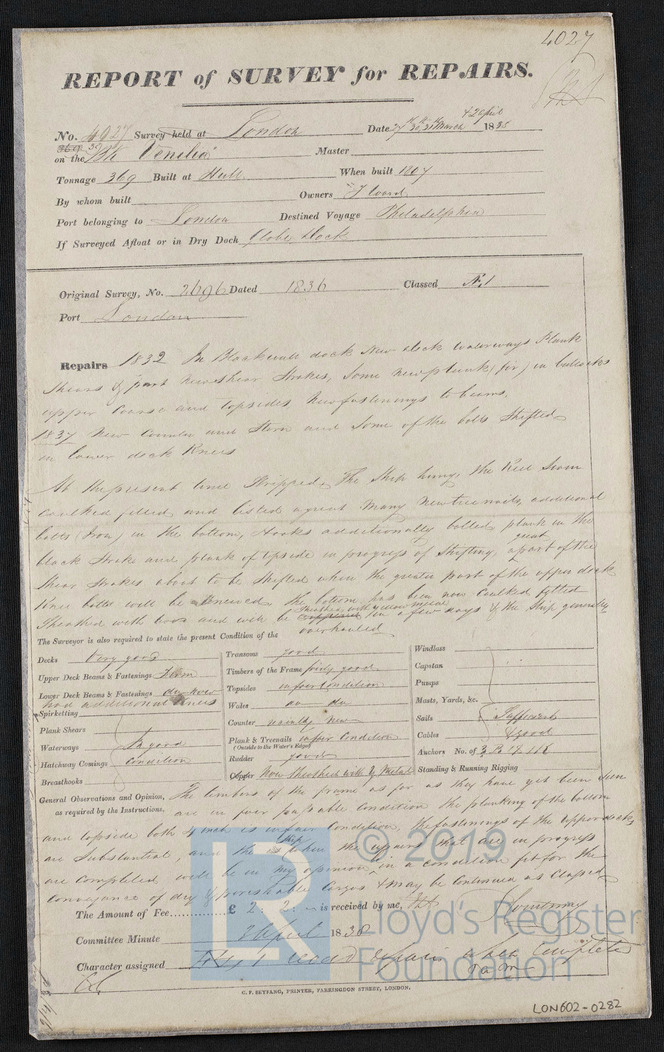 4027
REPORT of SURVEY for REPAIRS.
No. 4027 Survey held at London Date 1838
on the Venilia Master
Tonnage 369 Built at Hull When built 1807
By whom built Owners
Port belonging to London Destined Voyage Philadelphia
If Surveyed Afloat or in Dry Dock Globe Dock
Original Survey, No. 2696 Dated 1836 Classed Æ1
Port London
Repairs 1832 In Blackwall dock New deck waterways Plank
Shears & part new shear strakes, Some new plank in
upper course and topsides, new fastenings to beams,
1837 New Counter and Stern and Some of the bolts Shifted
in lower deck Knees
At the present time Stripped, The Ship hung, the Keel Seam
caulked filled and listed a great Many new treenails, additional
bolts (Iron) in the bottom, Hooks additionally bolted, plank in the
black Strake and plank of topside in progress of Shifting, a great part of the
Shear Strakes about to be Shifted when the greater part of the upper deck
Knee bolts will be renewed the bottom has been now Caulked felted
Sheathed with wood and will be Sheathed with yellow metal in a few days & the Ship generally
overhauled
The Surveyor is also required to state the present Condition of the
Decks Very good
Upper Deck Beams & Fastenings Firm
Lower Deck Beams & Fastenings
had additional knees
Spirketting
Plank Shears
Waterways In good
Hatchway Comings Condition
Breasthooks
Treasons good
Timbers of the Frame good
Topsides in fair Condition
Wales do do
Counter nearly New
Plank & Treenails in fair Condition
(Outside to the Water's Edge)
Rudder good
Copper Now Sheathed with Y Metal
Windlass
Capstan
Pumps
Masts, Yards, &c.
Sails Sufficient
Cables & good
Anchors No. of
Standing & Running Rigging
General Observations and Opinion,
as required by the Instructions.
The timbers of the frame as far as they have yet been seen
are in fair condition the planking of the bottom
and topside both of which is in fair condition, the fastenings of the upper decks,
are Substantial, and the Ship when the repairs that are in progress
are completed will be in my opinion, in a condition fit for the
conveyance of dry & perishable Cargos & may be continued as Classed
The Amount of Fee............£ 2 : 2 : is received by me,
Committee Minute April 1838
Character assigned
C. F. SEYFANG, PRINTER, FARRINGDON STREET, LONDON.
LON602-0282
LR
© 2019
Lloyd's Register
Foundation